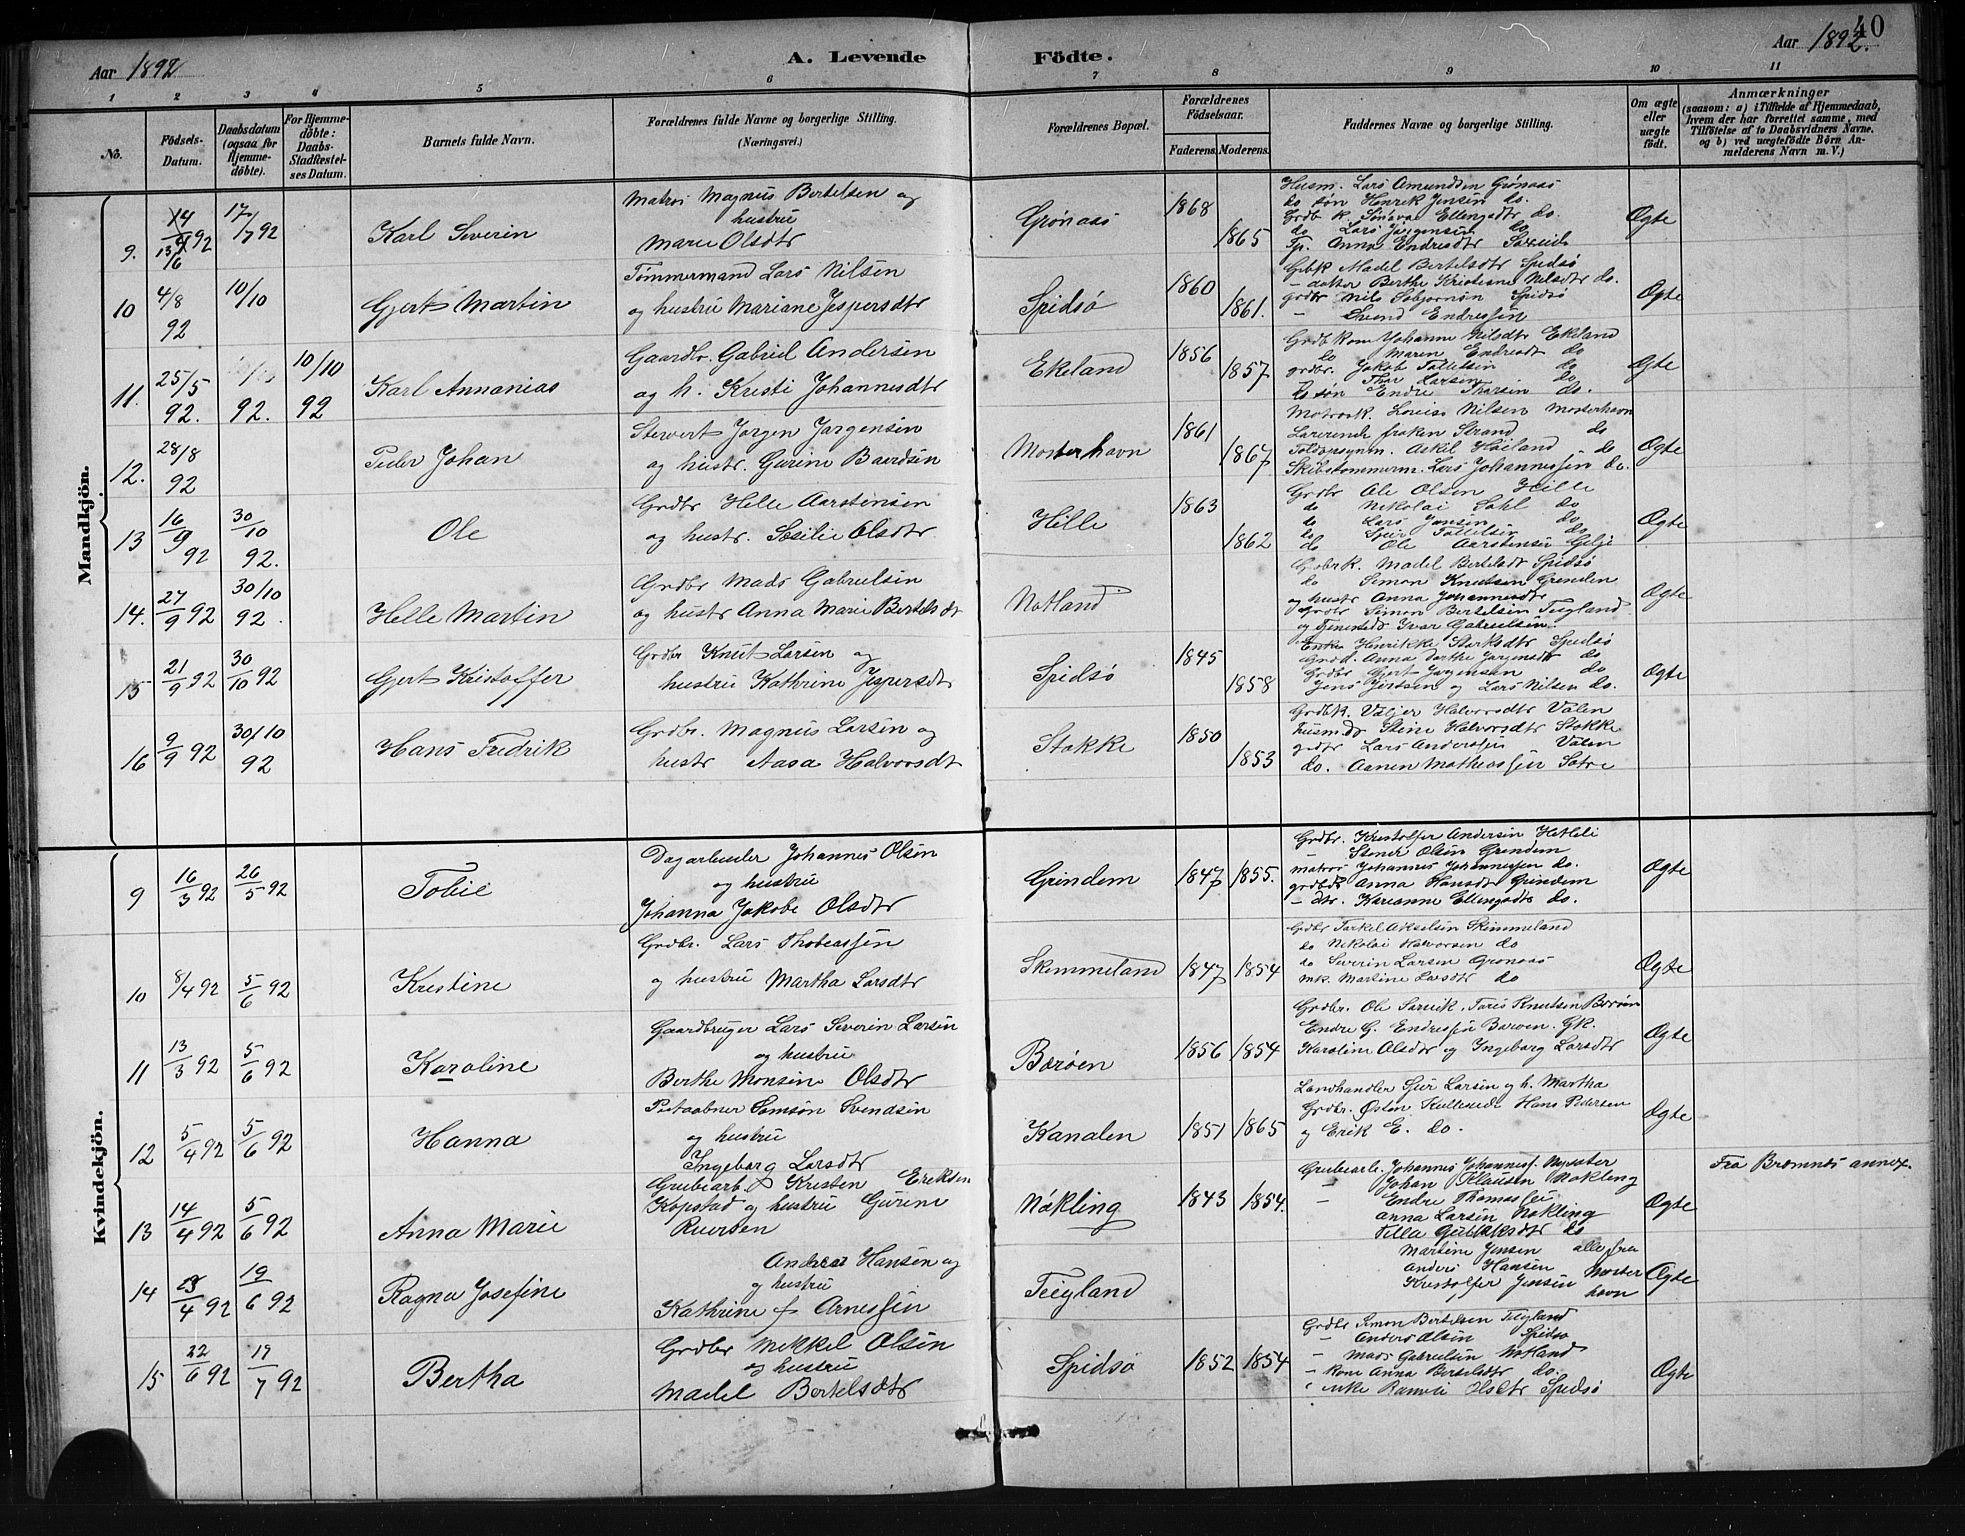 Aar 1892
A. Levende
Födte.
Aar 1892.
40
1 2 3 4 5 6 7 8 9 10 11
No.
Födsels-
Datum.
Daabsdatum
(ogsaa for
Hjemme-
döbte).
For Hjemme-
döbte:
Daabs-
Stadfestel-
ses Datum.
Barnets fulde Navn.
Forældrenes fulde Navne og borgerlige Stilling.
(Næringsvei.)
Forældrenes Bopæl.
Forældrenes
Födselsaar.
Faderens. Moderens.
Faddernes Navne og borgerlige Stilling.
Om ægte
eller
uægte
födt.
Anmærkninger
(saasom: a) i Tilfælde af Hjemmedaab,
hvem der har forrettet samme, med
Tilföielse af to Daabsvidners Navne,
og b) ved uægtefödte Börn An-
melderens Navn m. V.)
Mandkjön.
9. 17/7 92 Karl Severin
Matros Magnus Bertelsen og
hustru
Marie Olsdtr
Grønaas 1868 1865
Husm. Lars Amundsen Grønaas
do søn Henrik Jensen do.
Grdb k. Ellengsdtr do.
do Lars Jørgensen do
Tp. Anna Endresdtr
Ægte
10 4/8 92 10/10 Gjert Martin
Tømmermand Lars Nilsen
og hustru Mariane Jespersdtr
Spidsø 1860 1861.
Gdbk Madel Bertelsdtr Spidsø
– datter Berthe Kristiane Nilsdtr do.
grdbr Nils Spidsø
– Svend Endresen
Ægte
11. 25/5 92. 92. 10/10 92 Karl Annanias
Gaardbr. Gabriel Andersen
og h. Kristi Johannesdtr
Ekeland 1856 1857
Grdb kone Johanne Nilsdtr Ekeland
do Maren Endresdt do
grdbr. Jakob Tollefsen do
do Thor Larsen do
do søn Endre Thorsen do.
Ægte
12. 28/8 92 Peder Johan
Stewert Jørgen Jørgensen
og hustr. Gurine Baardsen
Mosterhavn 1861 1867
Matrosk. Lovise Nilsen Mosterhavn
Lærerinde frøken Strand do
Askil Høiland – do
Skibstømmerm. Lars Johannessen do.
Ægte
13 16/9 92 30/10 92. Ole
Grdbr Helle Aarstensen
og hustr. Sesilie Olsdtr
Hille 1863 1862
Grdbr Ole Olsen Hille
do Nikolai Dahl do
do Lars Jensen do
do Sjur Tollefsen do
do Ole Aarstensen Gilje
Ægte
14. 27/9 92 30/10 92. Helle Martin
Grdbr Mads Gabrielsen
og hustr Anna Marie Bertelsdt
Notland
Grdbrk. Madel Bertelsdt Spidsø
do Simon Knutsen Grinden
og hustr Anna Johannesdtr
Grdbr Simon Bertelsen Teigland
og Tjenestedr Ivar Gabrielsen.
Ægte
15 21/9 92 30/10 92 Gjert Kristoffer
Grdbr Knut Larsen og
hustru Kathrine Jespersdt
Spidsø 1845 1858
Enke Henrikke Spidsø
Grdd. Anna Dorthe Jørgensdtr do
Grdbr Gjert Jørgensen do
Jens Jensen og Lars Nilsen do.
Ægte
16 9/9 92 30/10 92 Hans Fredrik
Grdbr. Magnus Larsen og
hustr Aasa Halvorsdt
Stokke 1850 1853
Grdbk. Valjer Halvorsdtr Valen
husmds Stine Halvorsdtr Stokke
grdbr Lars Anderssen Valen
do. Aanen Mathiassen Sætre
Ægte
Kvindekjön.
9 16/3 92 26/5 92 Tobie
Dagarbeider Johannes Olsen
og hustru
Johanna Jakobe Olsdtr
Grindem 1847 1855.
Grdbr. Kristoffer Andersen Hetleli
– Stener Olsen Grendem
matros Johannes Johannessen do.
grdbds Anna Hansdtr Grindem
– dtr. Karianne Ellengsdtr do.
Ægte
10 8/4 92 5/6 92 Kristine
Grdbr. Lars Thobiassen
og hustru Martha Larsdtr
Skimmeland 1847 1854
Grdbr Torkel Akselsen Skimmeland
do Nikolai Halvorsen do
do Severin Larsen Grønaas
mk. Martine Larsdtr do
Ægte
11 13/3 92 5/6 92 Karoline
Gaardbruger Lars Severin Larsen
og hustru
Berthe Monsine Olsdtr
Børøen 1856 1854
Grdbr. Ole Særvik. Taris Knutsen Børøen
Endre G. Endressen Børøen. Gk.
Karoline Olsdtr og Ingeborg Larsdtr
Ægte
12 5/4 92 5/6 92 Hanna
Postaabner Samson Svendsen
og hustru
Ingeborg Larsdtr
Kanalen 1851 1865
Landhandler Sjur Larsen og h. Martha
Grdbr. Østen Kulleseid Hans Pedersen
og Erik E. do.
Ægte
13 14/4 92 5/6 92 Anna Marie
Grubearb. Kristen Eriksen
Kopstad og hustru Gurine
Nökling 1843 1854.
Grubearb. Johannes Johanness. Nysæter
– Johan Klausen Nökling
– Endre Thomassen
Anna Larsen Nökling
Tilla do
Ægte
Fra Bremnes annex.
14 13/4 92 19/6 92 Ragna Josefine
Andreas Hansen og
og hustru
Kathrine f Arnessen
Teigland
Martine Jensen alle fra
Anders Hansen Moster
Kristoffer Jensen havn
Ægte
15 22/6 92 17/7 92 Bertha
Grdbr Mikkel Olsen
og hustru
Madel Bertelsdtr
Spidsø 1852 1854
Grdbr Simon Bertelsen Teigland
– Anders Olsen Spidsø
– Mads Gabrielsen Notland
– kone Anna Bertelsdtr do.
enke Olsdtr Spidsø
Ægte